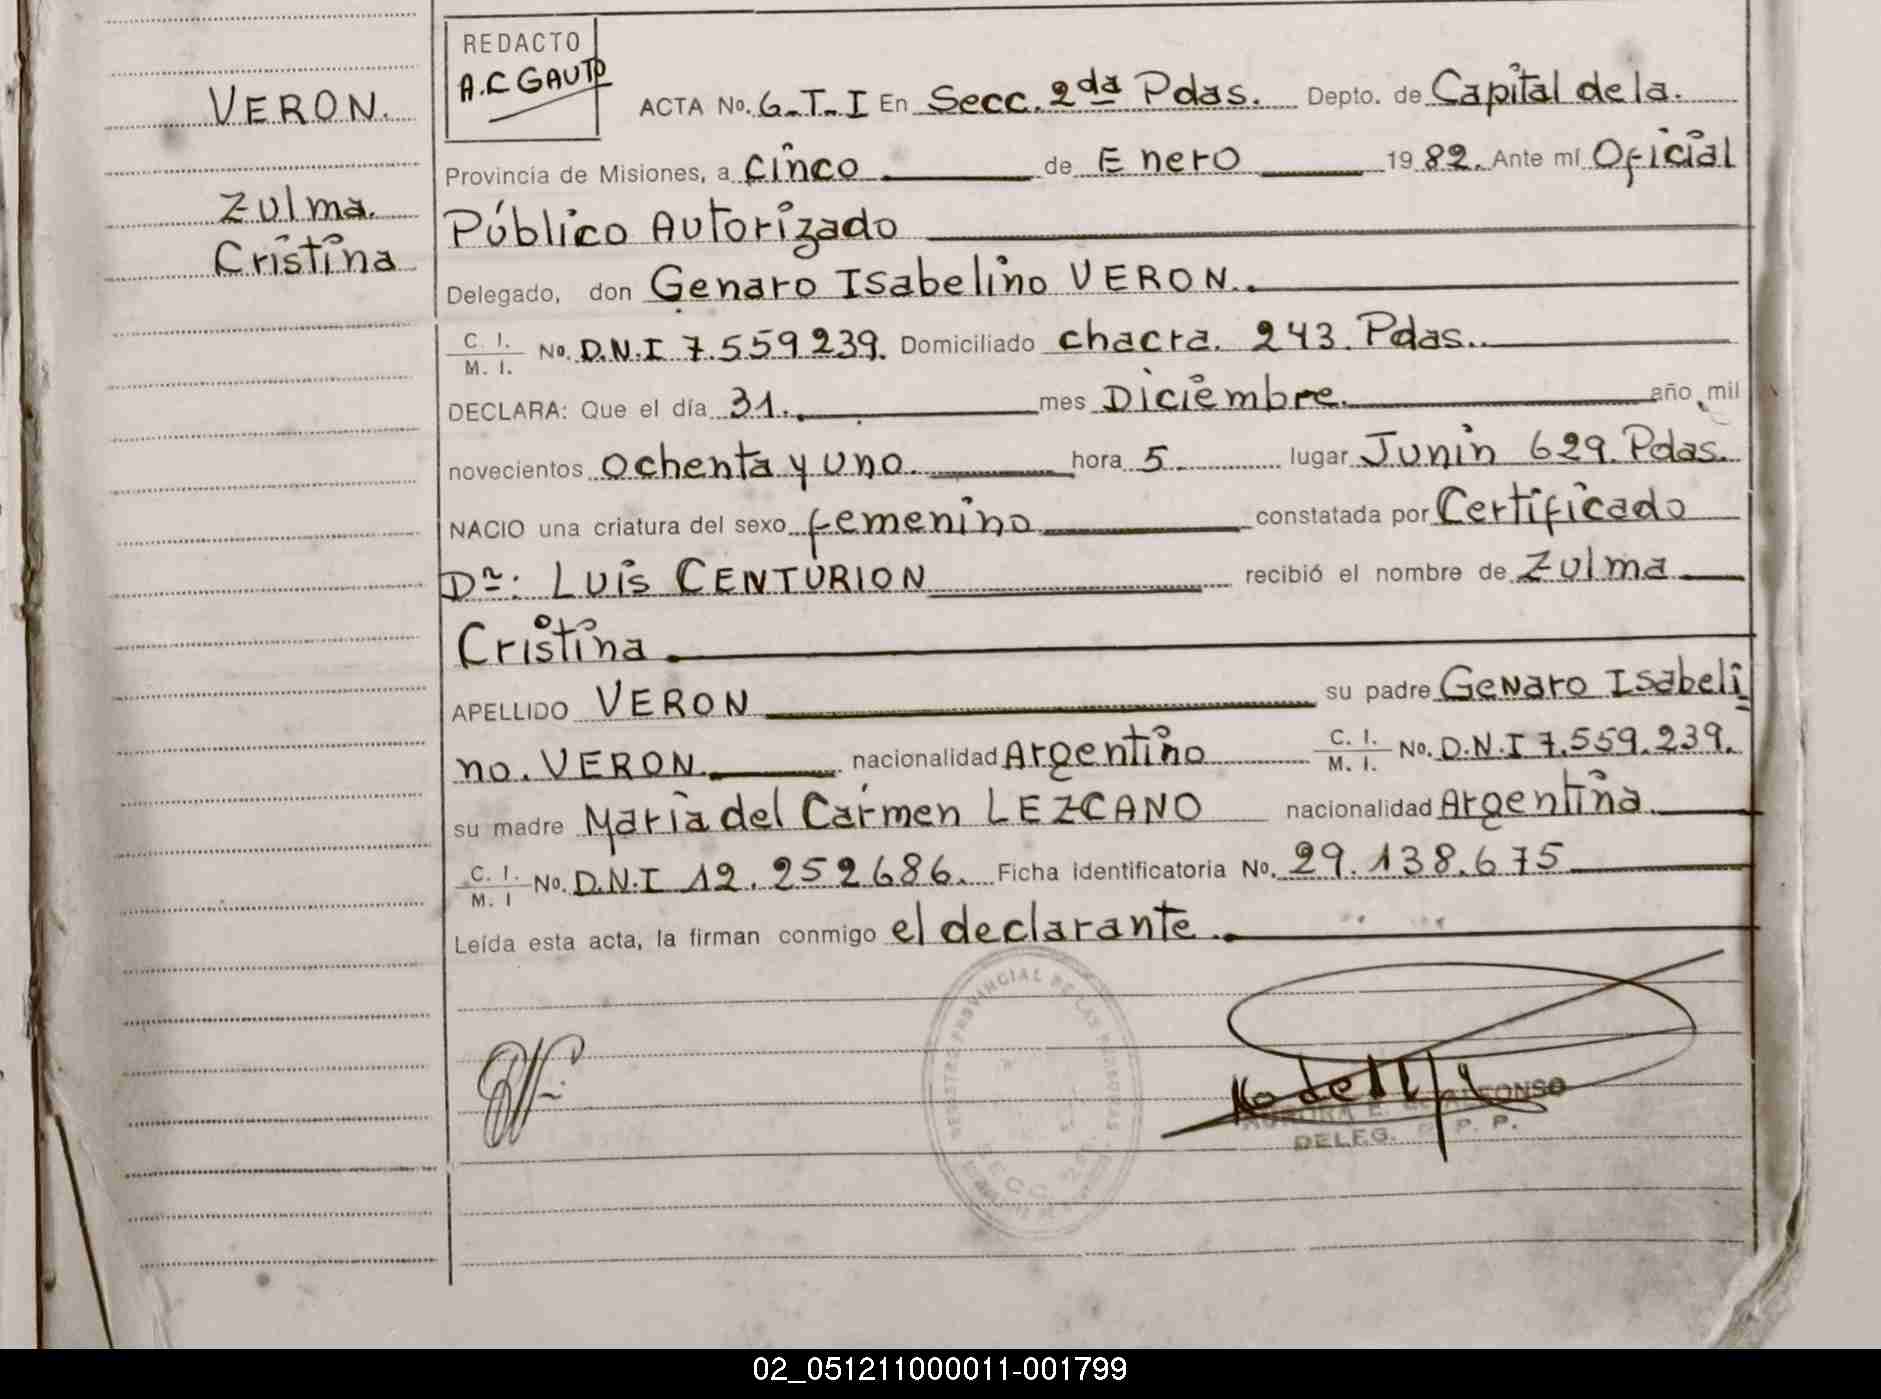 VERON.
Zulma.
Cristina
REDACTO
A.C GAUTO
ACTA No. 6-T-I En Secc. 2da Pdas. Depto. de Capital de la.
Provincia de Misiones, a cinco de Enero 1982. Ante mi Oficial
Público Autorizado
Delegado, don Genaro Isabelino VERON.
C. I. / M. I. No. D.N.I 7.559239. Domiciliado chacra. 243. Pdas.
DECLARA: Que el día 31. mes Diciembre. año mil
novecientos ochenta y uno. hora 5. lugar Junin 629. Pdas.
NACIO una criatura del sexo femenino constatada por Certificado
Dr: Luis CENTURION recibió el nombre de Zulma
Cristina
APELLIDO VERON su padre Genaro Isabeli
no. VERON. nacionalidad Argentino C. I. / M. I. No. D.N.I 7.559.239.
su madre Maria del Carmen LEZCANO nacionalidad Argentina.
C. I. / M. I No. D.N.I 12.252686. Ficha identificatoria No. 29.138.675
Leída esta acta, la firman conmigo el declarante.
PROVINCIAL DE LAS PERSONAS
SECC. 2a.
DELEG. P. P.
02_051211000011-001799